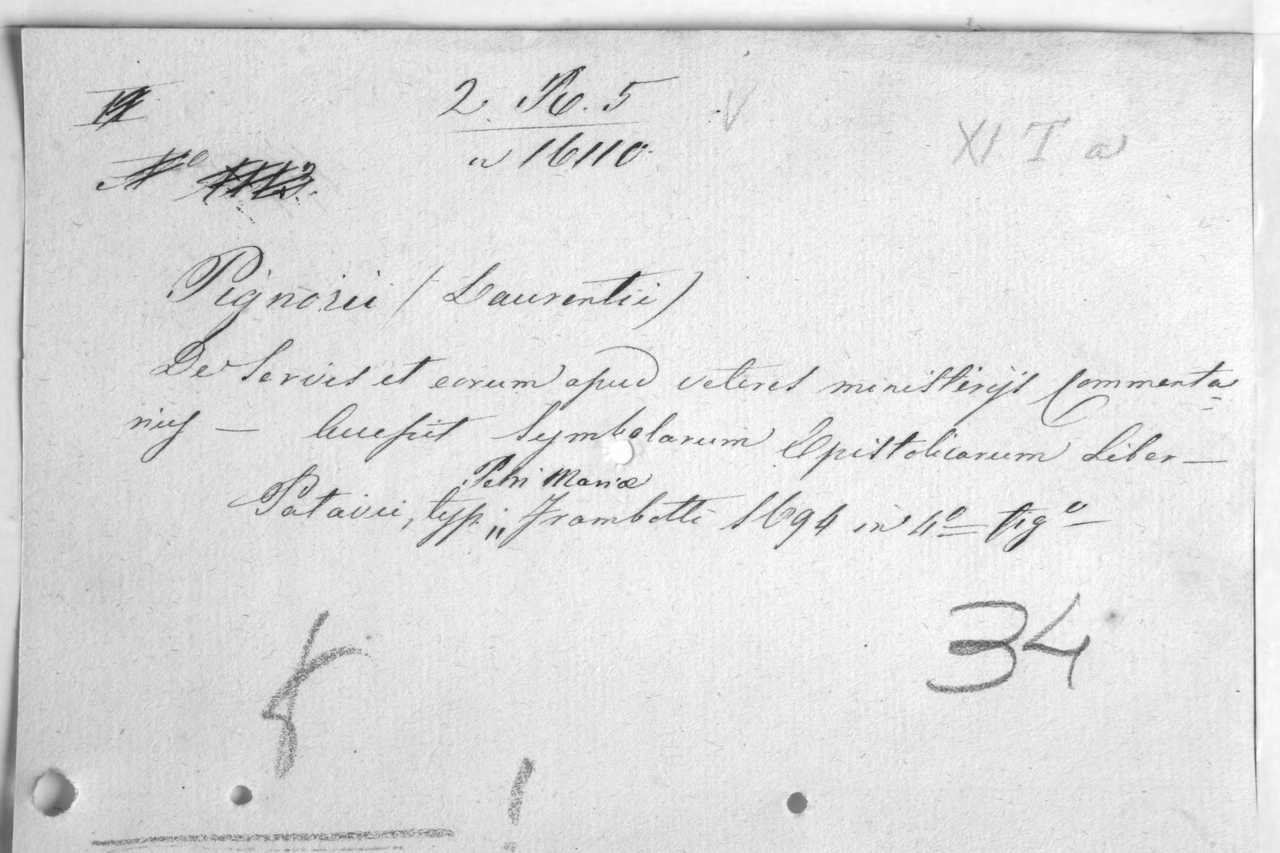 2. R. 5
a 16110.
XI T a
No
Pignorii (Laurentii)
De Servis et eorum apud veteres ministerijs Commenta=
rius — Accessit Symbolarum Epistolicarum Liber —
Petri Mariæ
Patavii, typ: Frambotti 1694 in 4º figº —
34